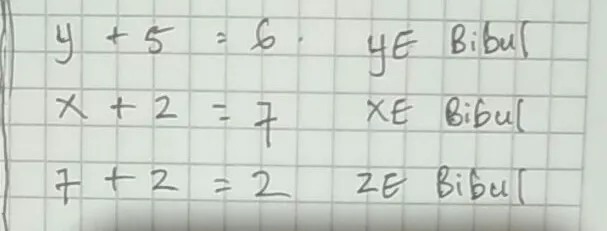 y + 5 = 6. y ∈ Bibul
x + 2 = 7 x ∈ Bibul
7 + 2 = 2 z ∈ Bibul